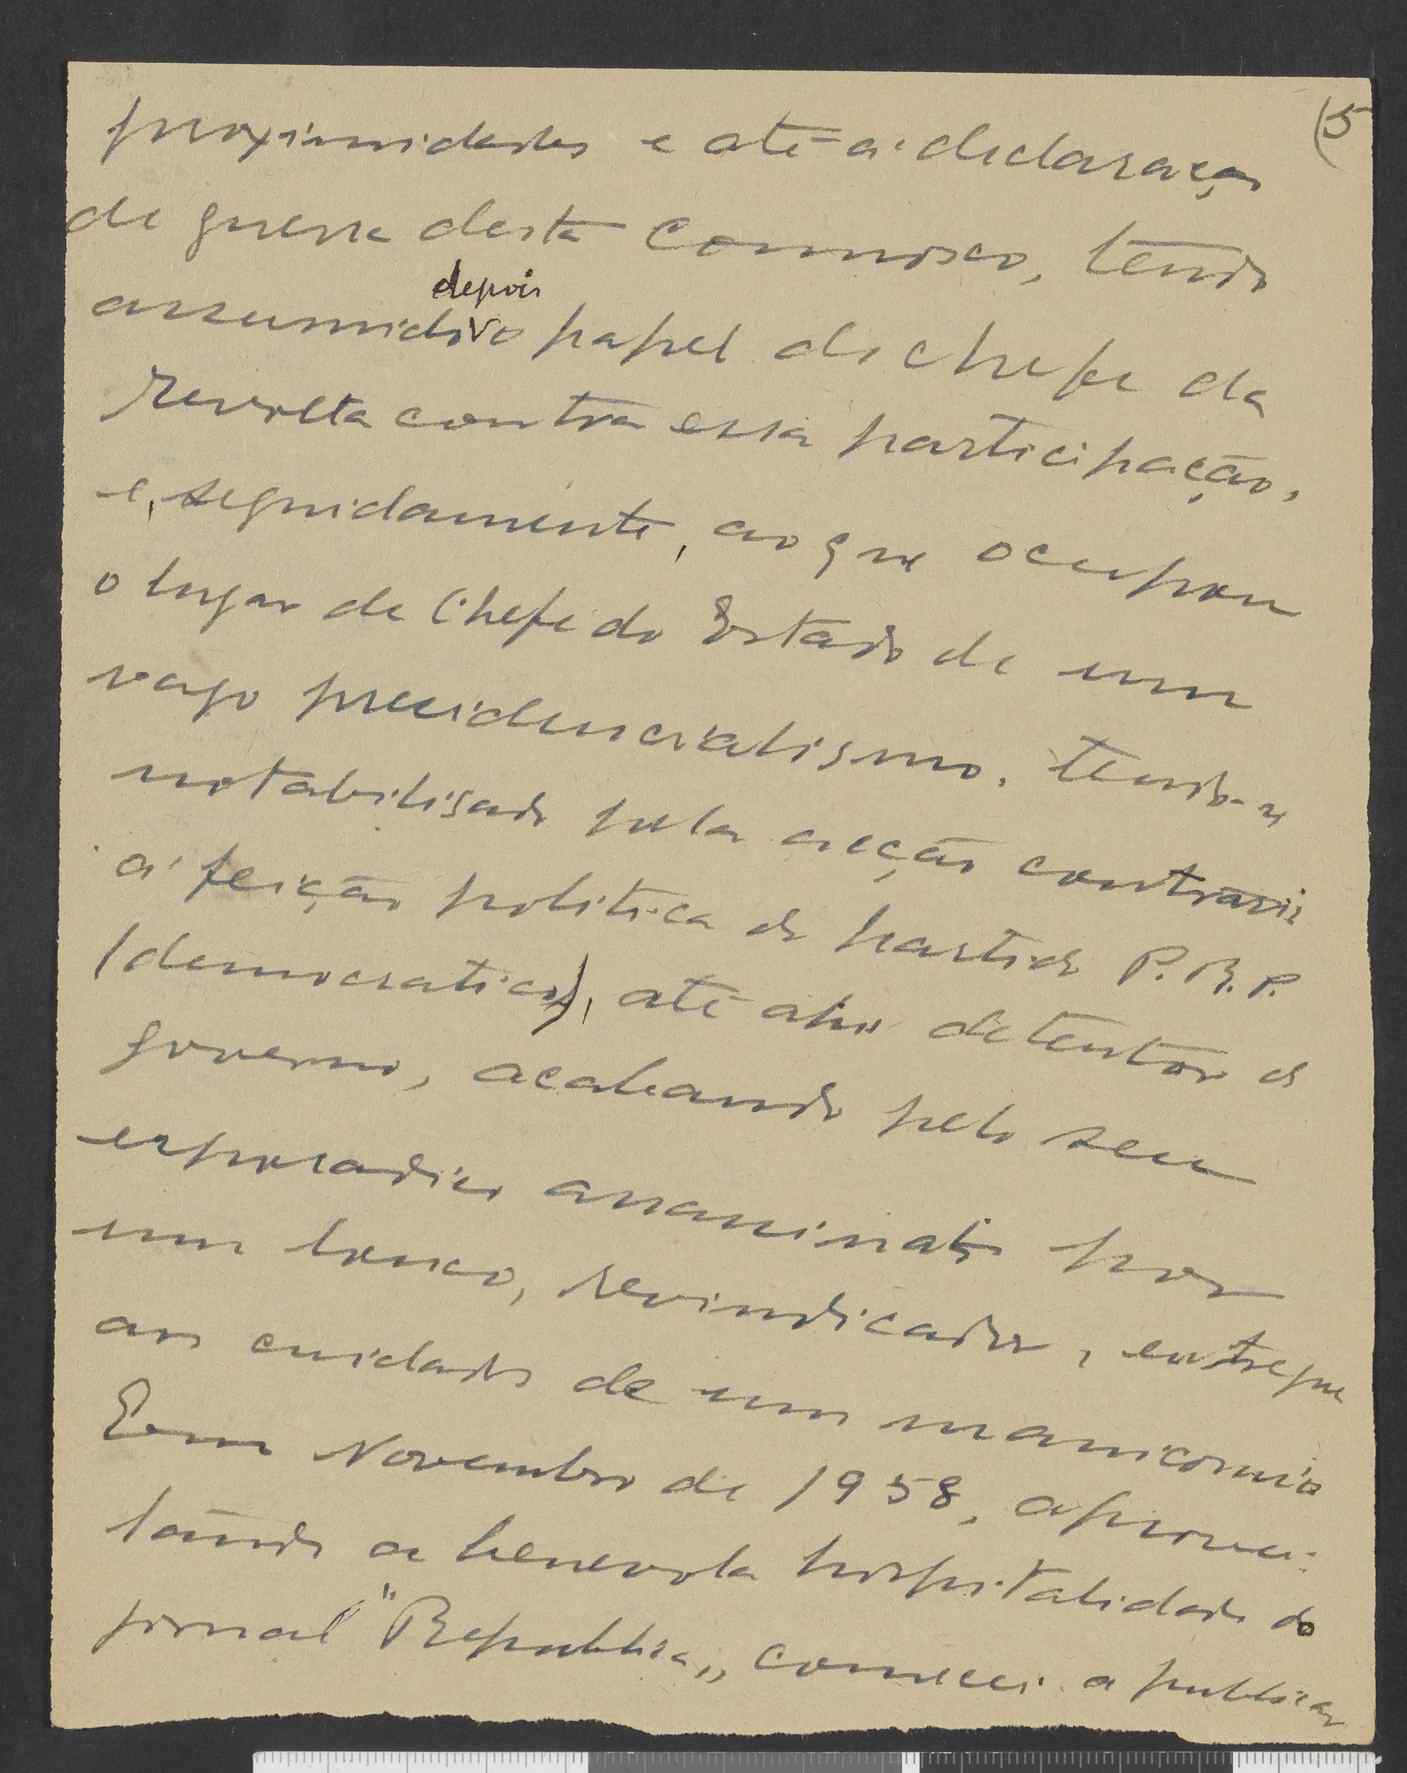 (5
proximidades e até á declaração
de guerra desta comnosco, tendo
depois
assumido o papel de chefe da
revolta contra essa participação,
e, seguidamente, ao que ocupou
o lugar de Chefe do Estado de um
vago presidencialismo, tendo-se
notabilisado pela acção contrária
á feição politica do partido P.R.P.
(democratico), até ahi detentor do
governo, acabando pelo seu
esporadico assassinato por
um louco, revindicador, entregue
aos cuidados de um manicomio
Em Novembro de 1958, aprovei-
tando a benevola hospitalidade do
jornal "Republica,, comecei a publicar